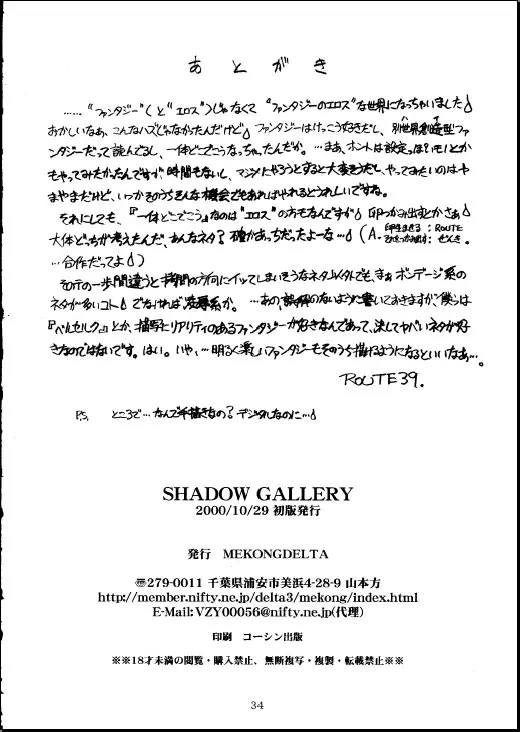 あとがき
……"ファンタジー"(と"エロス")じゃなくて "ファンタジーのエロス"な世界になっちゃいました
おかしいなぁ、こんなハズじゃなかったんだけど ファンタジーはけっこう好きだし、別世界創造型ファ
ンタジーだって読んでるし、一体どこでこうなっちゃったんだか。…まあ、ホントは設定っぽいモノとか
もやってみたかったんですが時間もないし、マジメにやろうとすると大変そうだし、やってみたいのはや
まやまだけど、いつかそのうちそんな機会でもあればやれるとうれしいですね。
それにしても、『一体どこでこう』なのは"エロス"の方もなんですが 卵つかみ出すとかさぁ
大体どっちが考えたんだ、あんなネタ? 確かあっちだったよーな…(A. 卵生ませる:ROUTE
…合作だってよ)
その一歩間違うと拷問の方向にイッてしまいそうなネタ以外でも、まぁボンデージ系の
ネタが多いコト でなければ凌辱系か。…あの、誤解のないように書いておきますが、僕らは
『ベルセルク』とか、描写にリアリティのあるファンタジーが好きなんであって、決してヤバいネタが好
きなのではないです。はい。いや、…明るく楽しいファンタジーもそのうち描けるようになるといいなぁ…。
ROUTE39.
P.S. ところで…なんで手描きなの?デジタルなのに…
SHADOW GALLERY
2000/10/29 初版発行
発行 MEKONGDELTA
〠279-0011 千葉県浦安市美浜4-28-9 山本方
http://member.nifty.ne.jp/delta3/mekong/index.html
E-Mail:VZY00056@nifty.ne.jp(代理)
印刷 コーシン出版
※※18才未満の閲覧・購入禁止、無断複写・複製・転載禁止※※
34